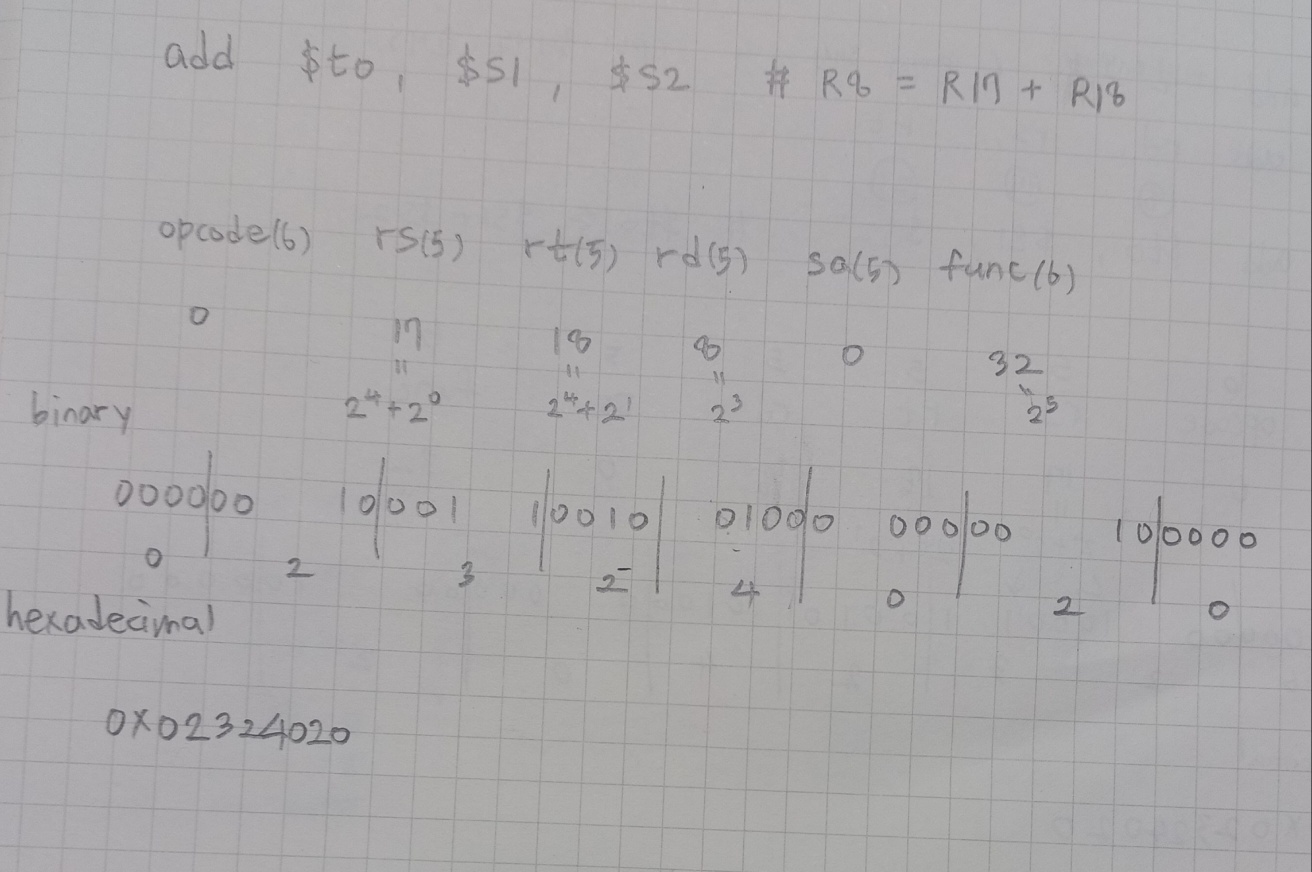 add $t0, $S1, $S2 # R8 = R17 + R18
opcode(6) rs(5) rt(5) rd(5) sa(5) func(6)
0 17 18 8 0 32
= = = =
binary 2⁴+2⁰ 2⁴+2¹ 2³ 2⁵
0000|00 10|001 1|0010| 0100|0 000|00 10|0000
0 2 3 2 4 0 2 0
hexadecimal
0x02324020